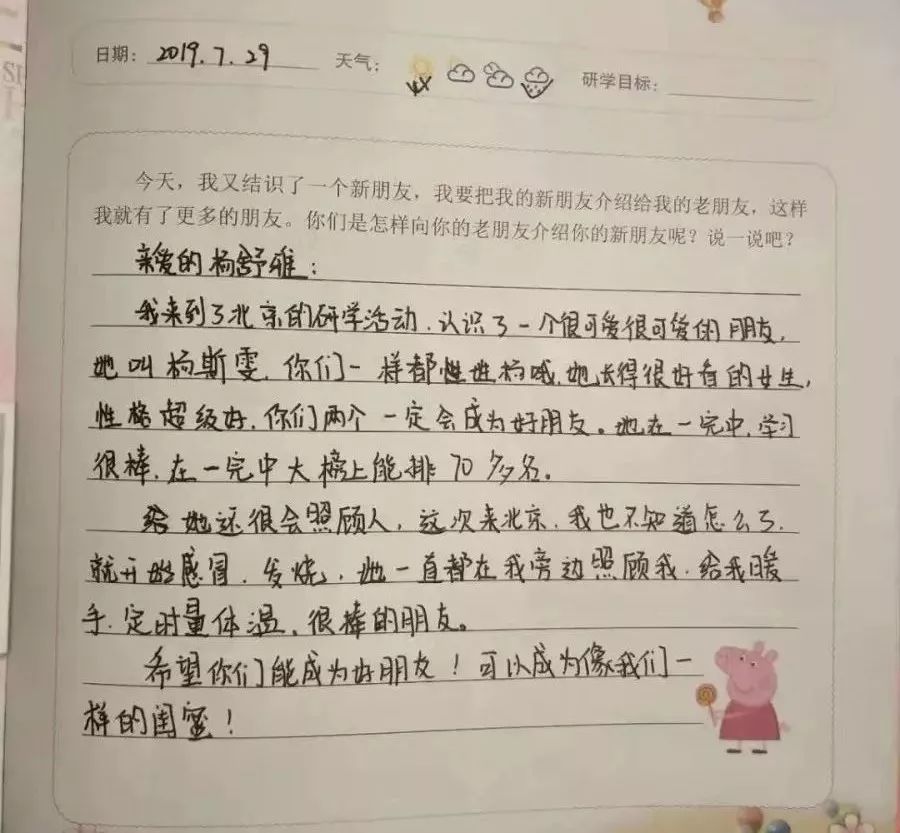 日期: 2019.7.29 天气: 研学目标:
今天，我又结识了一个新朋友，我要把我的新朋友介绍给我的老朋友，这样
我就有了更多的朋友。你们是怎样向你的老朋友介绍你的新朋友呢？说一说吧？
亲爱的杨舒雅：
我来到了北京的研学活动，认识了一个很可爱很可爱的朋友，
她叫杨斯雯，你们一样都姓杨哦，她长得很好看的女生，
性格超级好，你们两个一定会成为好朋友。她在一完中，学习
很棒，在一完中大榜上能排70多名。
她还很会照顾人，这次来北京，我也不知道怎么了，
就开始感冒，发烧，她一直都在我旁边照顾我，给我暖
手，定时量体温，很棒的朋友。
希望你们能成为好朋友！可以成为像我们一
样的闺蜜！